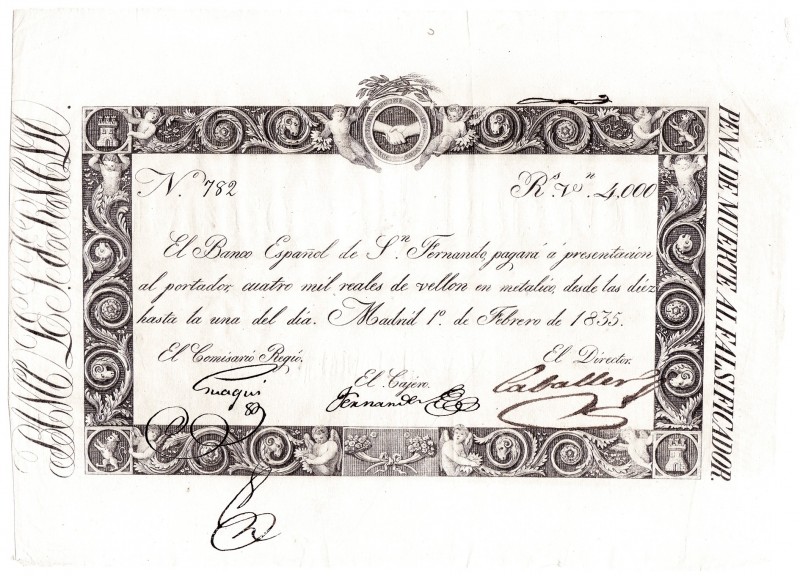 N. 782
Rˢ. Vⁿ. 4,000
El Banco Español de Sⁿ. Fernando, pagará á presentacion
al portador, cuatro mil reales de vellon en metalico, desde las diez
hasta la una del dia. Madrid 1º. de Febrero de 1835.
El Comisario Regio.
El Cajero.
El Director.
Fernandez
Caballero
PENA DE MUERTE AL FALSIFICADOR.